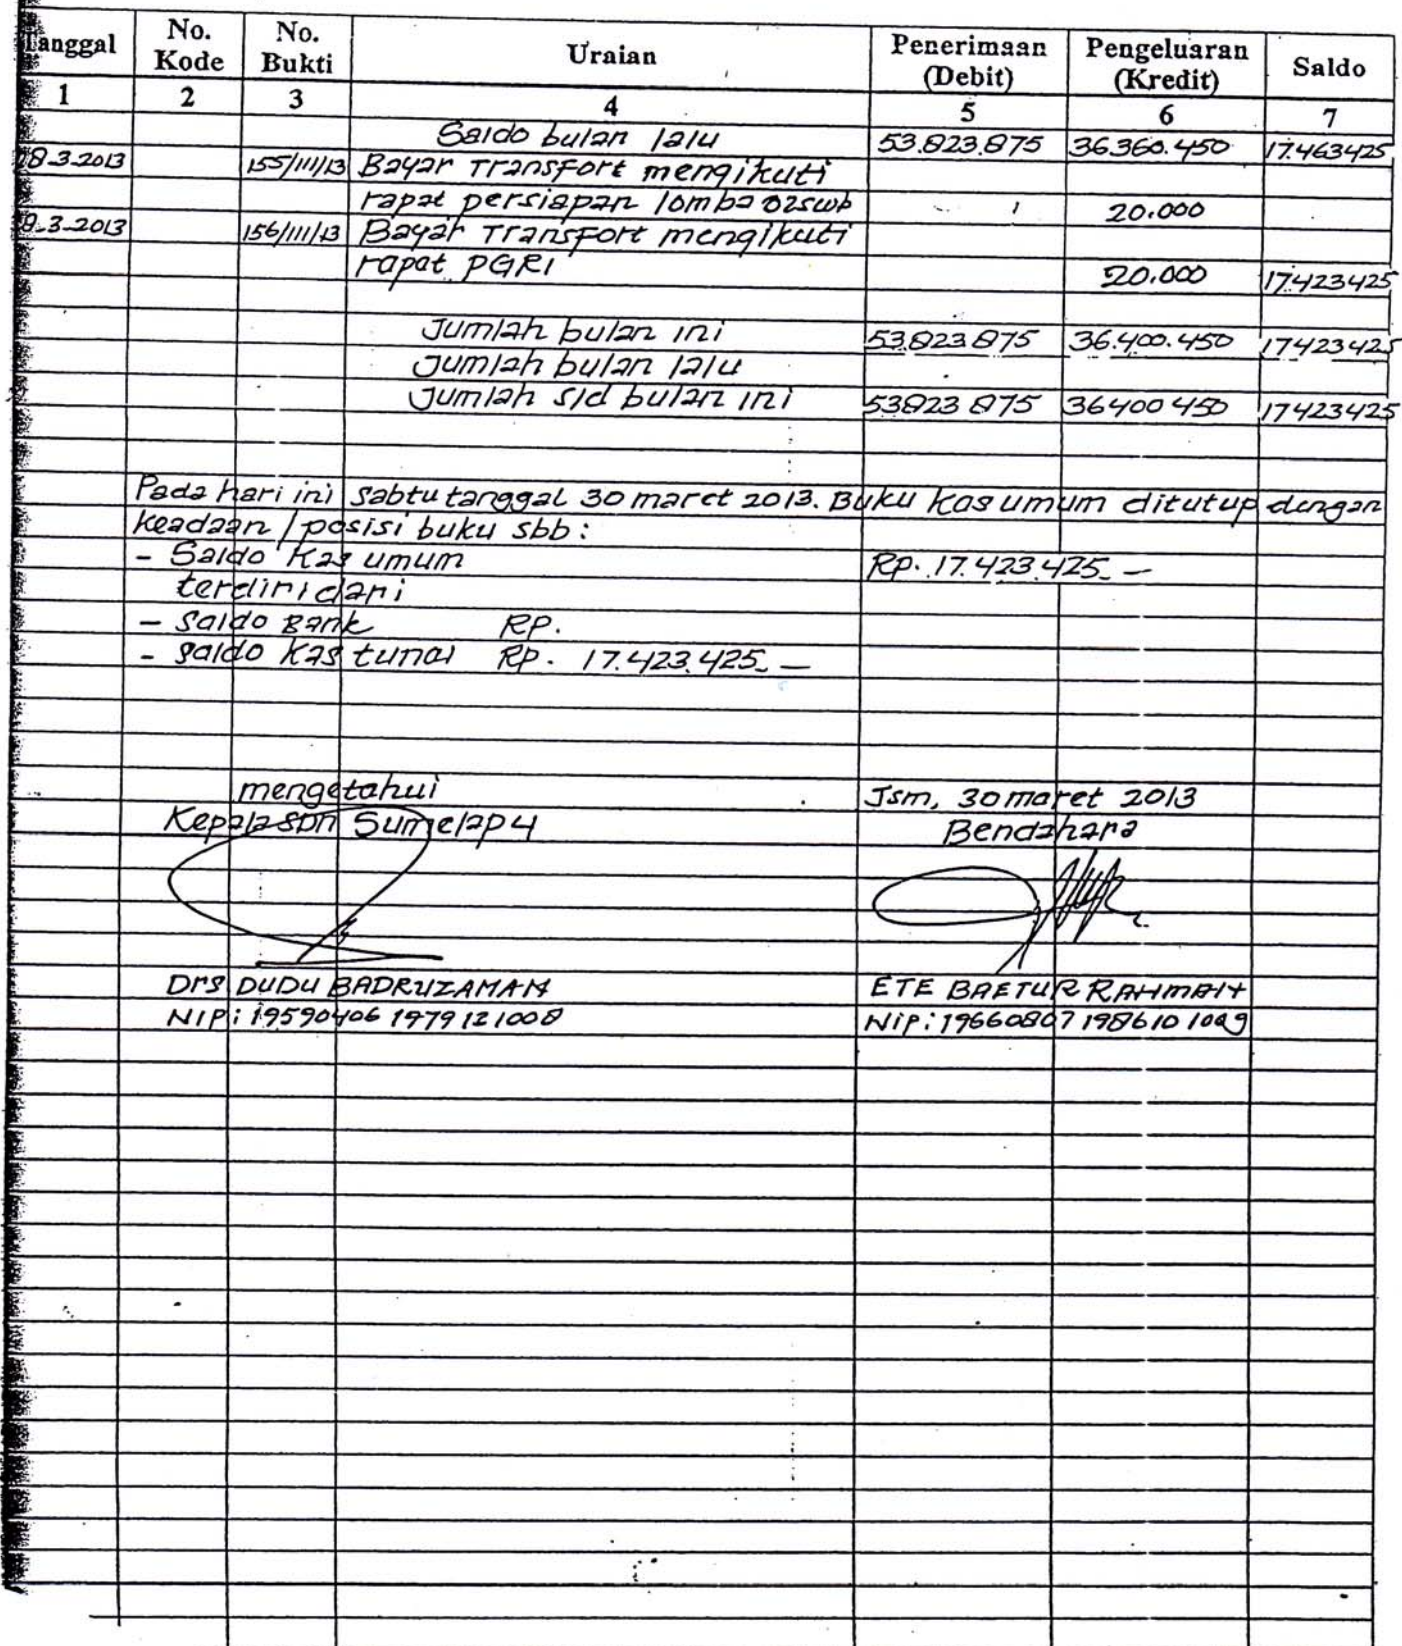 Tanggal No. Kode No. Bukti Uraian Penerimaan (Debit) Pengeluaran (Kredit) Saldo
1 2 3 4 5 6 7
Saldo bulan lalu 53.823.875 36.360.450 17.463425
8-3-2013 155/III/13 Bayar Transfort mengikuti
rapat persiapan lomba 20.000
9-3-2013 156/III/13 Bayar Transfort mengikuti
rapat PGRI 20.000 17.423425
Jumlah bulan ini 53.823.875 36.400.450 17423425
Jumlah bulan lalu
Jumlah s/d bulan ini 53823 875 36400 450 17423425
Pada hari ini sabtu tanggal 30 maret 2013. Buku kas umum ditutup dengan
keadaan / posisi buku sbb:
- Saldo Kas umum Rp. 17.423.425.-
terdiri dari
- saldo Bank RP.
- saldo kas tunai Rp. 17.423.425.-
mengetahui Tsm, 30 maret 2013
Kepala SDN Sumelap 4 Bendahara
Drs DUDU BADRUZAMAN ETE BAETUR RAHMAH
NIP: 19590406 1979121008 NIP: 19660807 198610